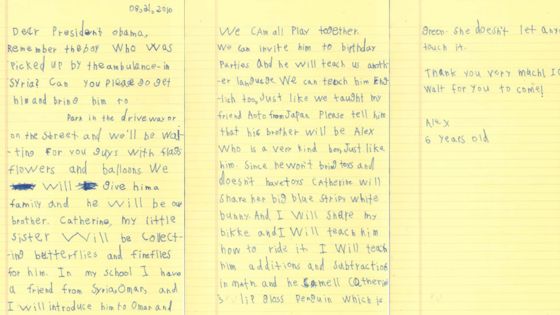 Dear President Obama,
Remember the boy who was
picked up by the ambulance in
Syria? Can you please go get
him and bring him to
Park in the driveway or
on the street and we'll be wai-
ting for you guys with flags
flowers and balloons. We
will give him a
family and he will be our
brother. Catherine, my little
sister will be collect-
ing butterflies and fireflies
for him. In my school I have
a friend from Syria, Omar, and
I will introduce him to Omar and
We can all play together.
We can invite him to birthday
parties and he will teach us anoth-
er language. We can teach him Eng-
lish too, just like we taught my
friend Aoto from Japan. Please tell him
that his brother will be Alex
who is a very kind boy, just like
him. Since he won't bring toys and
doesn't have toys Catherine will
share her big blue stripy white
bunny. And I will share my
bikke and I will teach him
how to ride it. I will teach
him additions and subtraction
in math and he smell Catherine
's lip gloss penguin which is
green. She doesn't let any
touch it.
Thank you very much! I c
wait for you to come!
Alex
6 years old